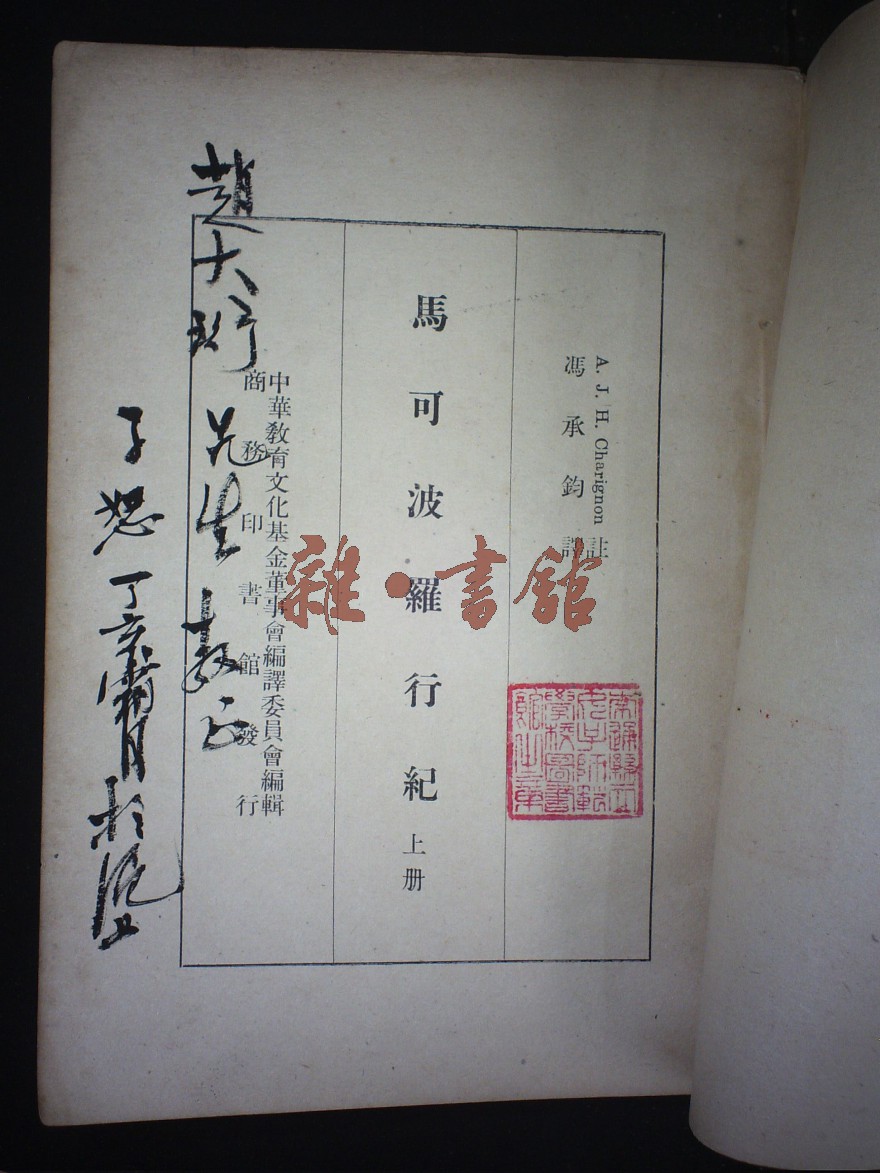 A. J. H. Charignon 註
馮承鈞譯
馬可波羅行紀 上册
中華敎育文化基金董事會編譯委員會編輯
商務印書館發行
趙大 先生教正
子恕 丁亥霜月於滬上
雜·書館